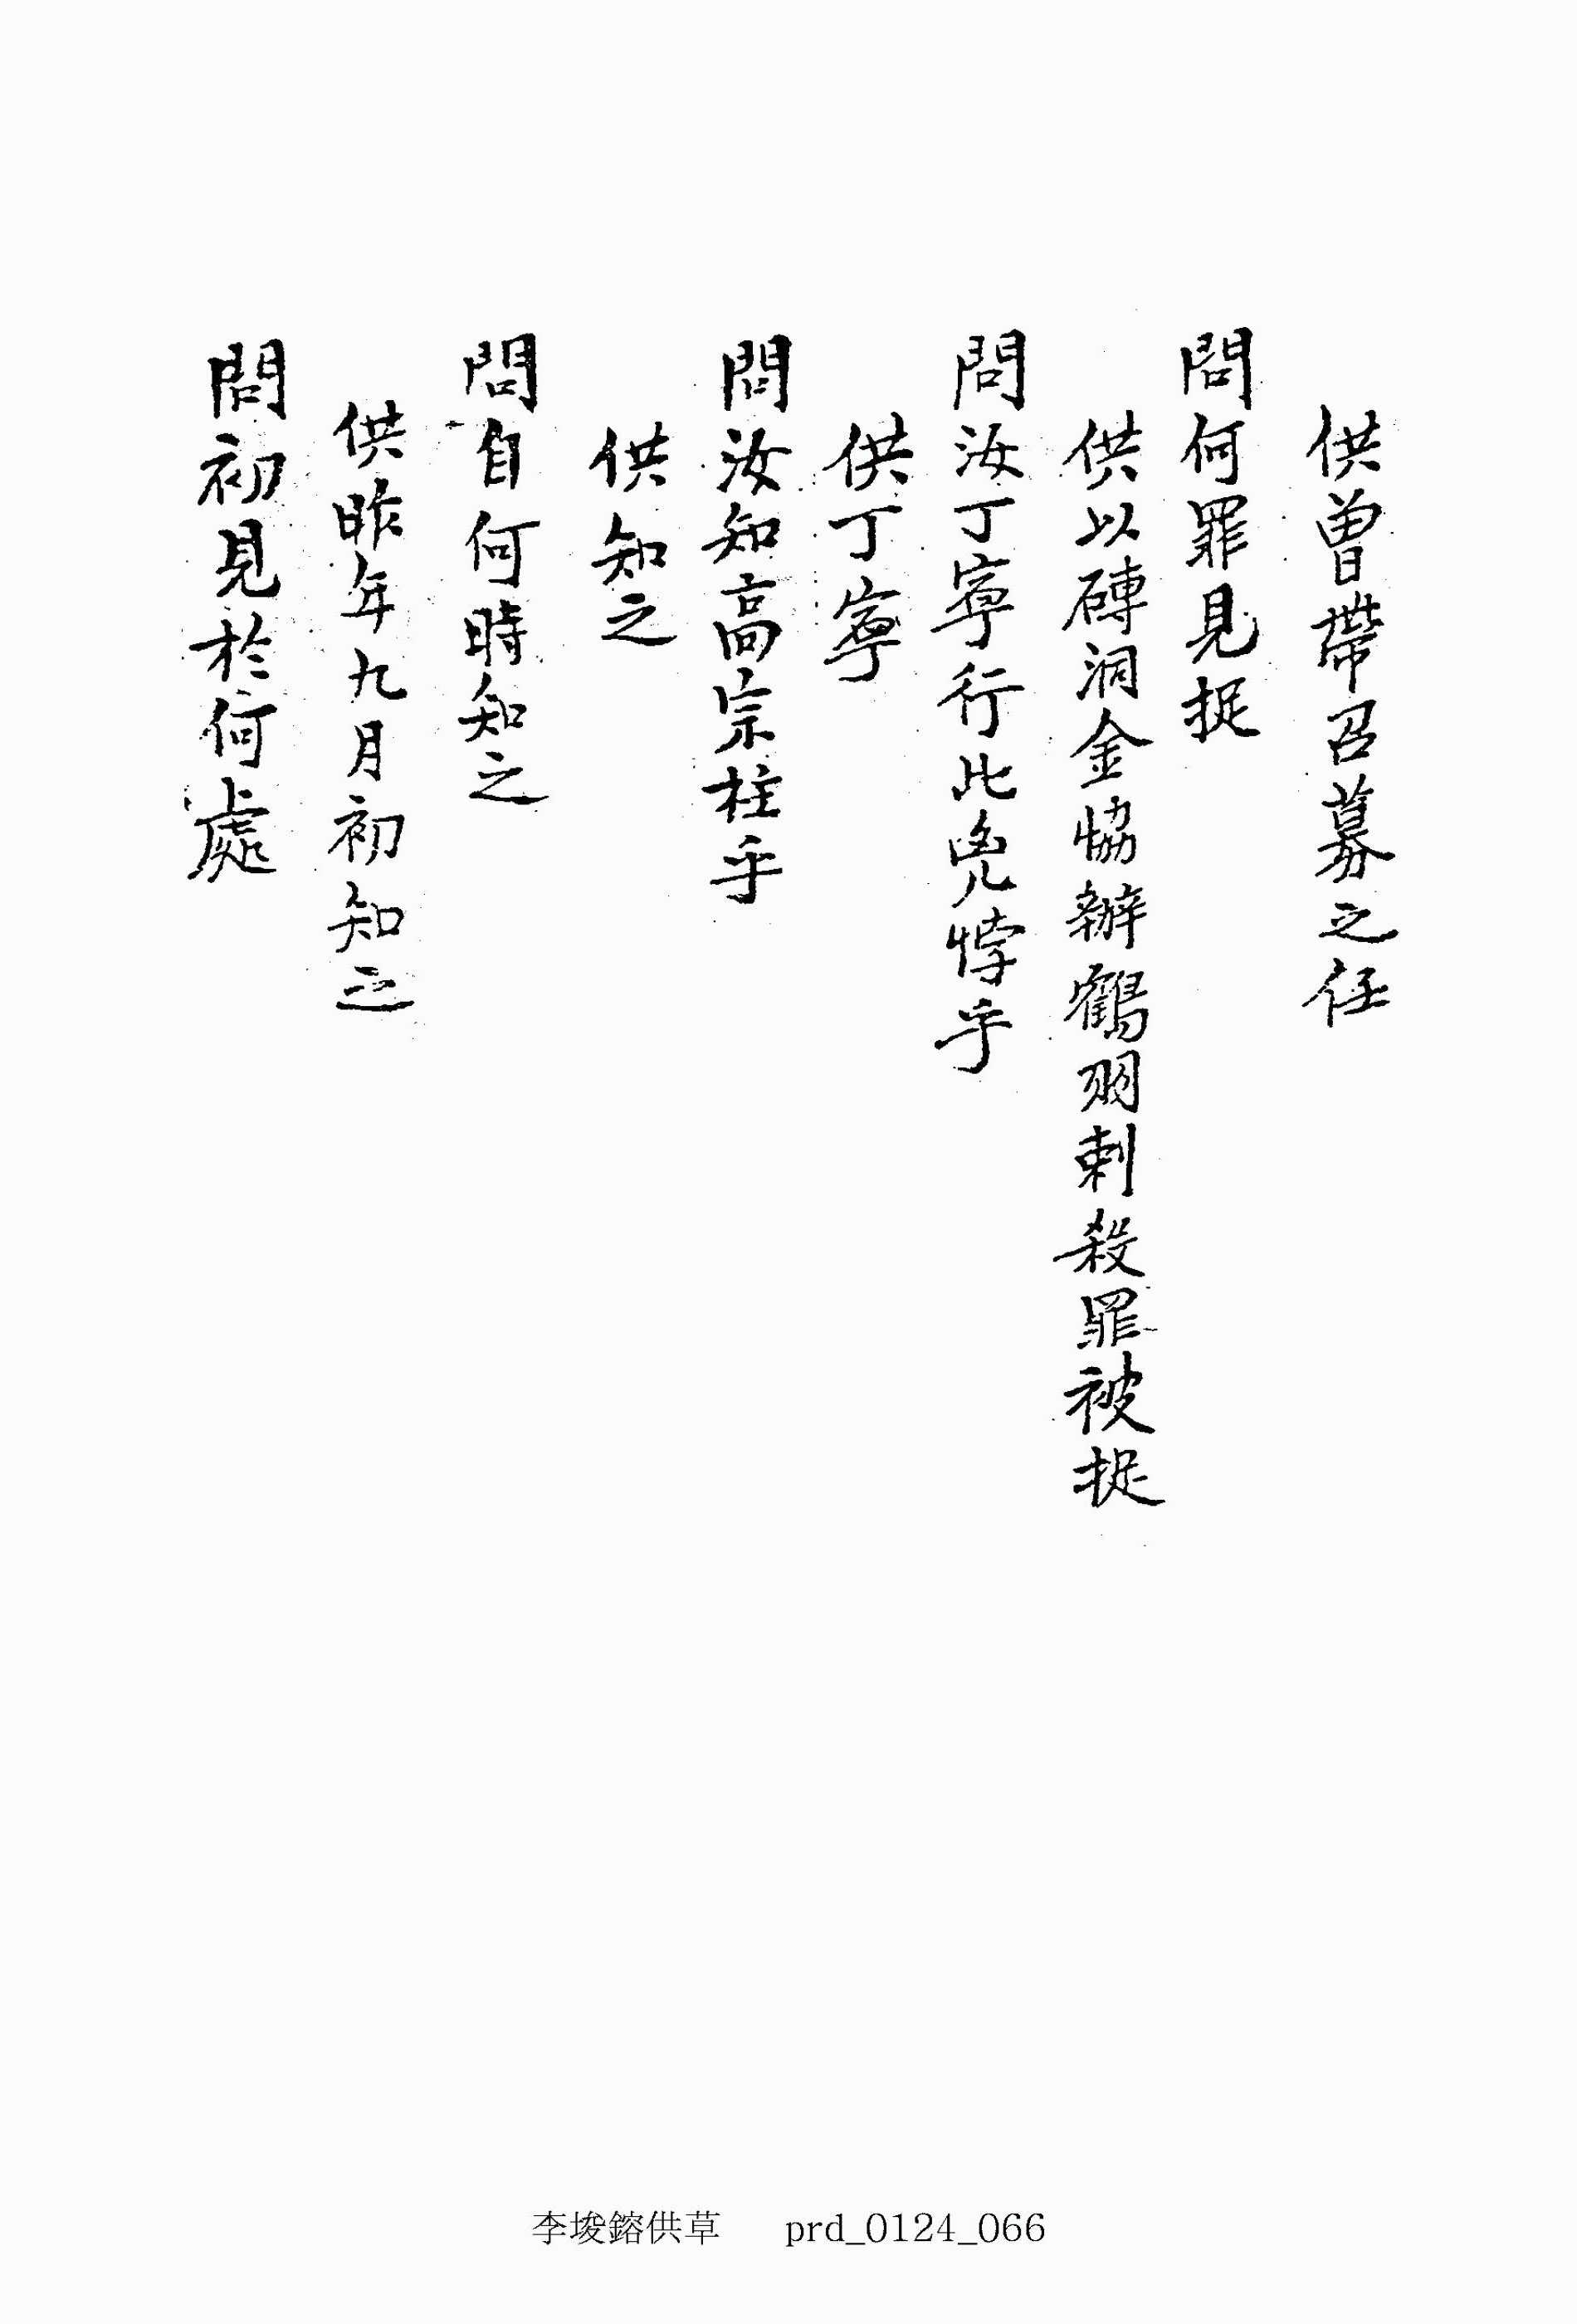 供曾帶召募之任
問何罪見捉
供以磚洞金協辦鶴羽刺殺罪被捉
問汝丁寧行此兇悖乎
供丁寧
問汝知高宗柱乎
供知之
問自何時知之
供昨年九月初知之
問初見於何處
李埈鎔供草 prd_0124_066